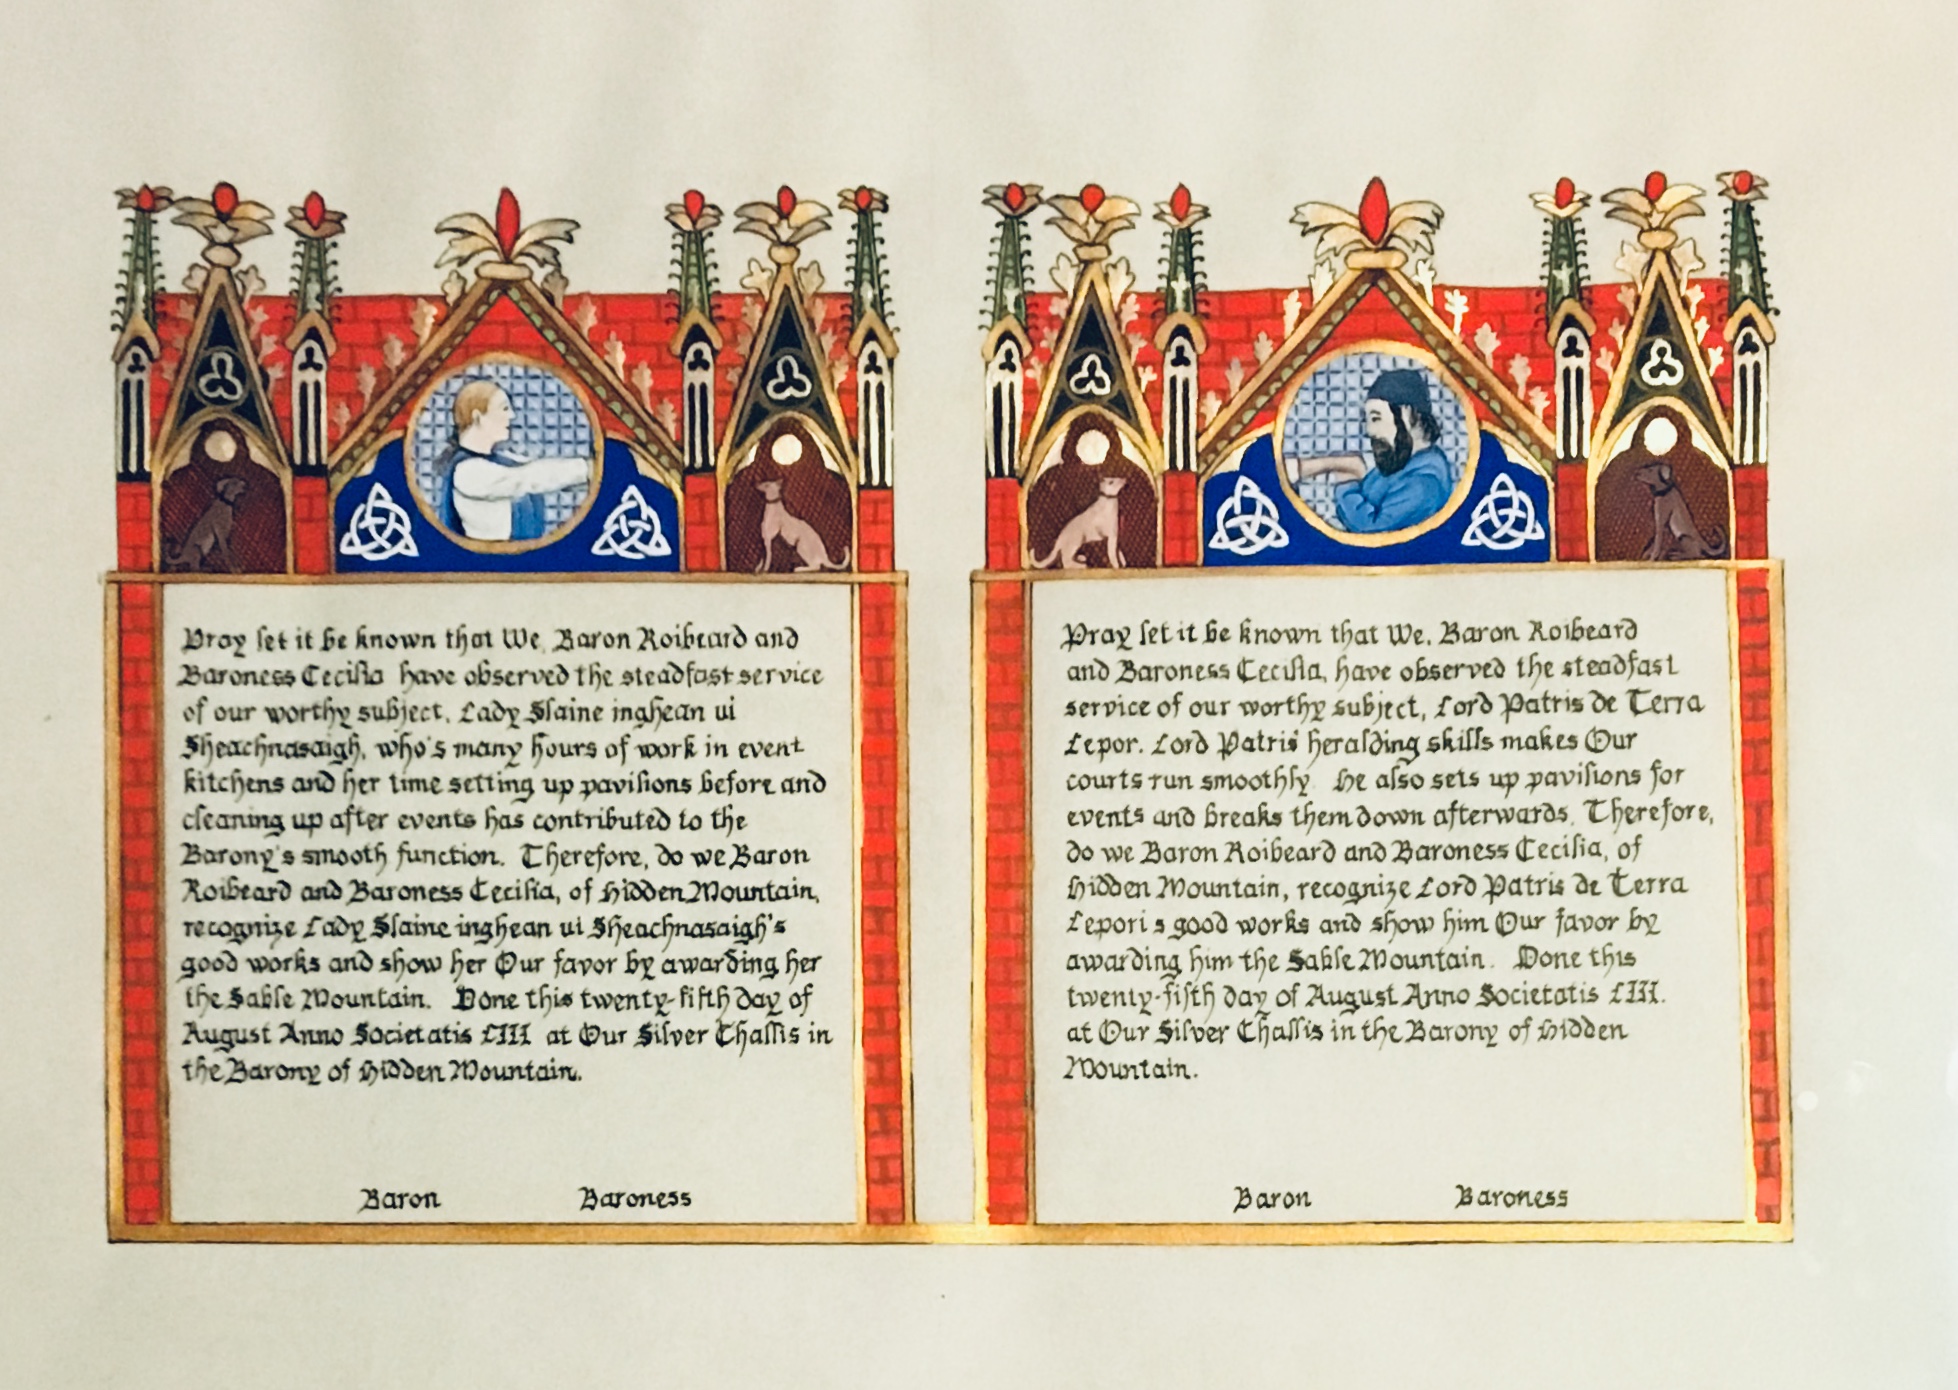 Pray let it be known that We, Baron Roibeard and
Baroness Cecilia have observed the steadfast service
of our worthy subject, Lady Slaine inghean ui
Sheachnasaigh, who's many hours of work in event
kitchens and her time setting up pavilions before and
cleaning up after events has contributed to the
Barony's smooth function. Therefore, do we Baron
Roibeard and Baroness Cecilia, of Hidden Mountain,
recognize Lady Slaine inghean ui Sheachnasaigh's
good works and show her Our favor by awarding her
the Sable Mountain. Done this twenty-fifth day of
August Anno Societatis LIII at Our Silver Challis in
the Barony of Hidden Mountain.
Baron Baroness
Pray let it be known that We, Baron Roibeard
and Baroness Cecilia, have observed the steadfast
service of our worthy subject, Lord Patris de Terra
Lepor. Lord Patris' heralding skills makes Our
courts run smoothly. He also sets up pavilions for
events and breaks them down afterwards. Therefore,
do we Baron Roibeard and Baroness Cecilia, of
Hidden Mountain, recognize Lord Patris de Terra
Lepori s good works and show him Our favor by
awarding him the Sable Mountain. Done this
twenty-fifth day of August Anno Societatis LIII.
at Our Silver Challis in the Barony of Hidden
Mountain.
Baron Baroness